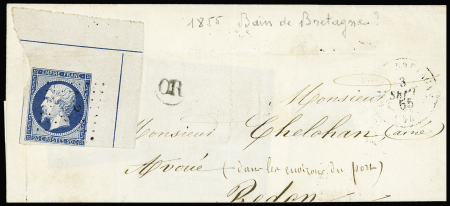 1855 Bain de Bretagne
EMPIRE FRANC
20 C. POSTES 20 C.
OR
3
SEPT
55
Monsieur
Monsieur Chelohan (ainé)
Avoué (dans les environs du port)
Redon